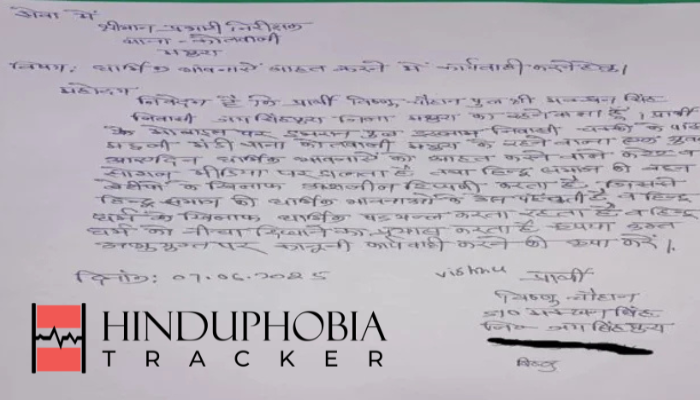 सेवा में
श्रीमान प्रभारी निरीक्षक
थाना - कोतवाली
मथुरा
विषय: धार्मिक भावनायें आहत करने में कार्यवाही करने हेतु।
महोदय
निवेदन है कि प्रार्थी विष्णु चौहान पुत्र श्री मक्खन सिंह
निवासी जयसिंहपुरा जिला मथुरा का रहने वाला है। प्रार्थी
के मोबाइल पर इमरान पुत्र निवासी चक्की के पास
मंडी थाना कोतवाली मथुरा के रहने वाला
आएदिन धार्मिक भावनाओं को आहत करने वाले
सोशल मीडिया पर डालता है तथा हिन्दू समाज की बहन
बेटीयों के खिलाफ अश्लील टिप्पणी करता है, जिससे
हिन्दू समाज की धार्मिक भावनाओं को ठेस पहुंचती है व हिन्दू
धर्म के खिलाफ धार्मिक षडयन्त्र करता रहता है व हिन्दू
धर्म को नीचा दिखाने का प्रयास करता है कृपया उक्त
अभियुक्त पर कानूनी कार्यवाही करने की कृपा करें।
दिनांक: 07.06.2025
vishnu प्रार्थी
विष्णु चौहान
S/O मक्खन सिंह
नि० जयसिंहपुरा
विष्णु
HINDUPHOBIA
TRACKER